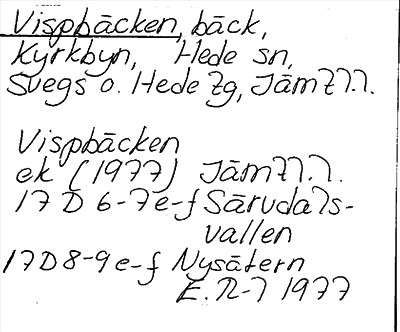 Vispbäcken, bäck,
Kyrkbyn, Hede sn,
Svegs o. Hede tg, Jämtl.l.
Vispbäcken
ek (1977) Jämtl.l.
17 D 6-7e-f Särvdals-
vallen
17D8-9e-f Nysätern
E.N-l 1977